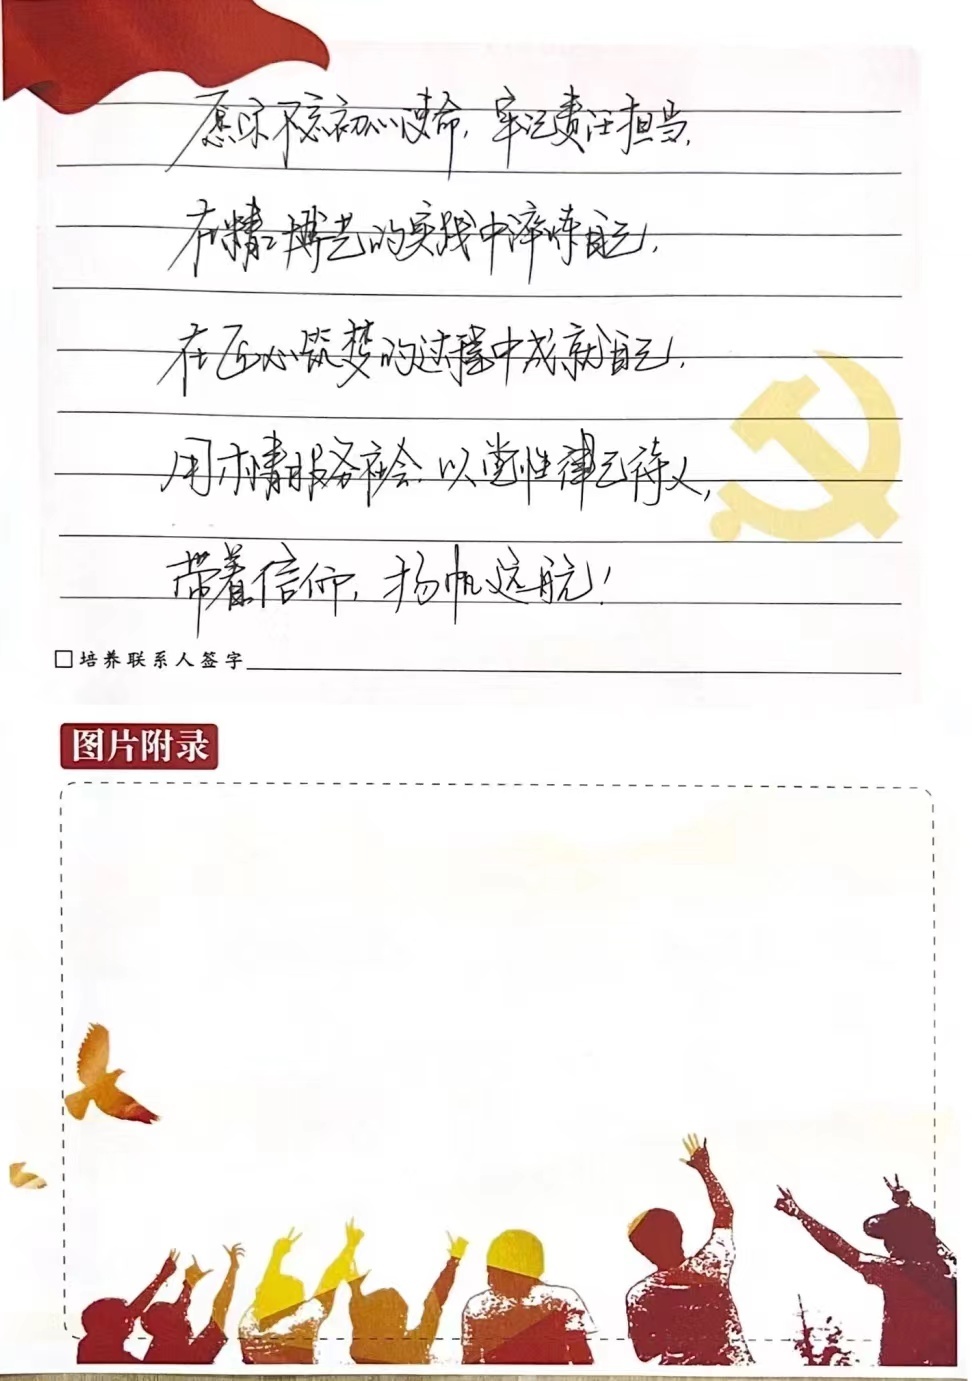 愿你不忘初心使命,牢记责任担当,
在精工博艺的实践中淬炼自己,
在匠心筑梦的过程中成就自己,
用才情服务社会,以党性律己待人,
带着信仰,扬帆远航!
□培养联系人签字
图片附录